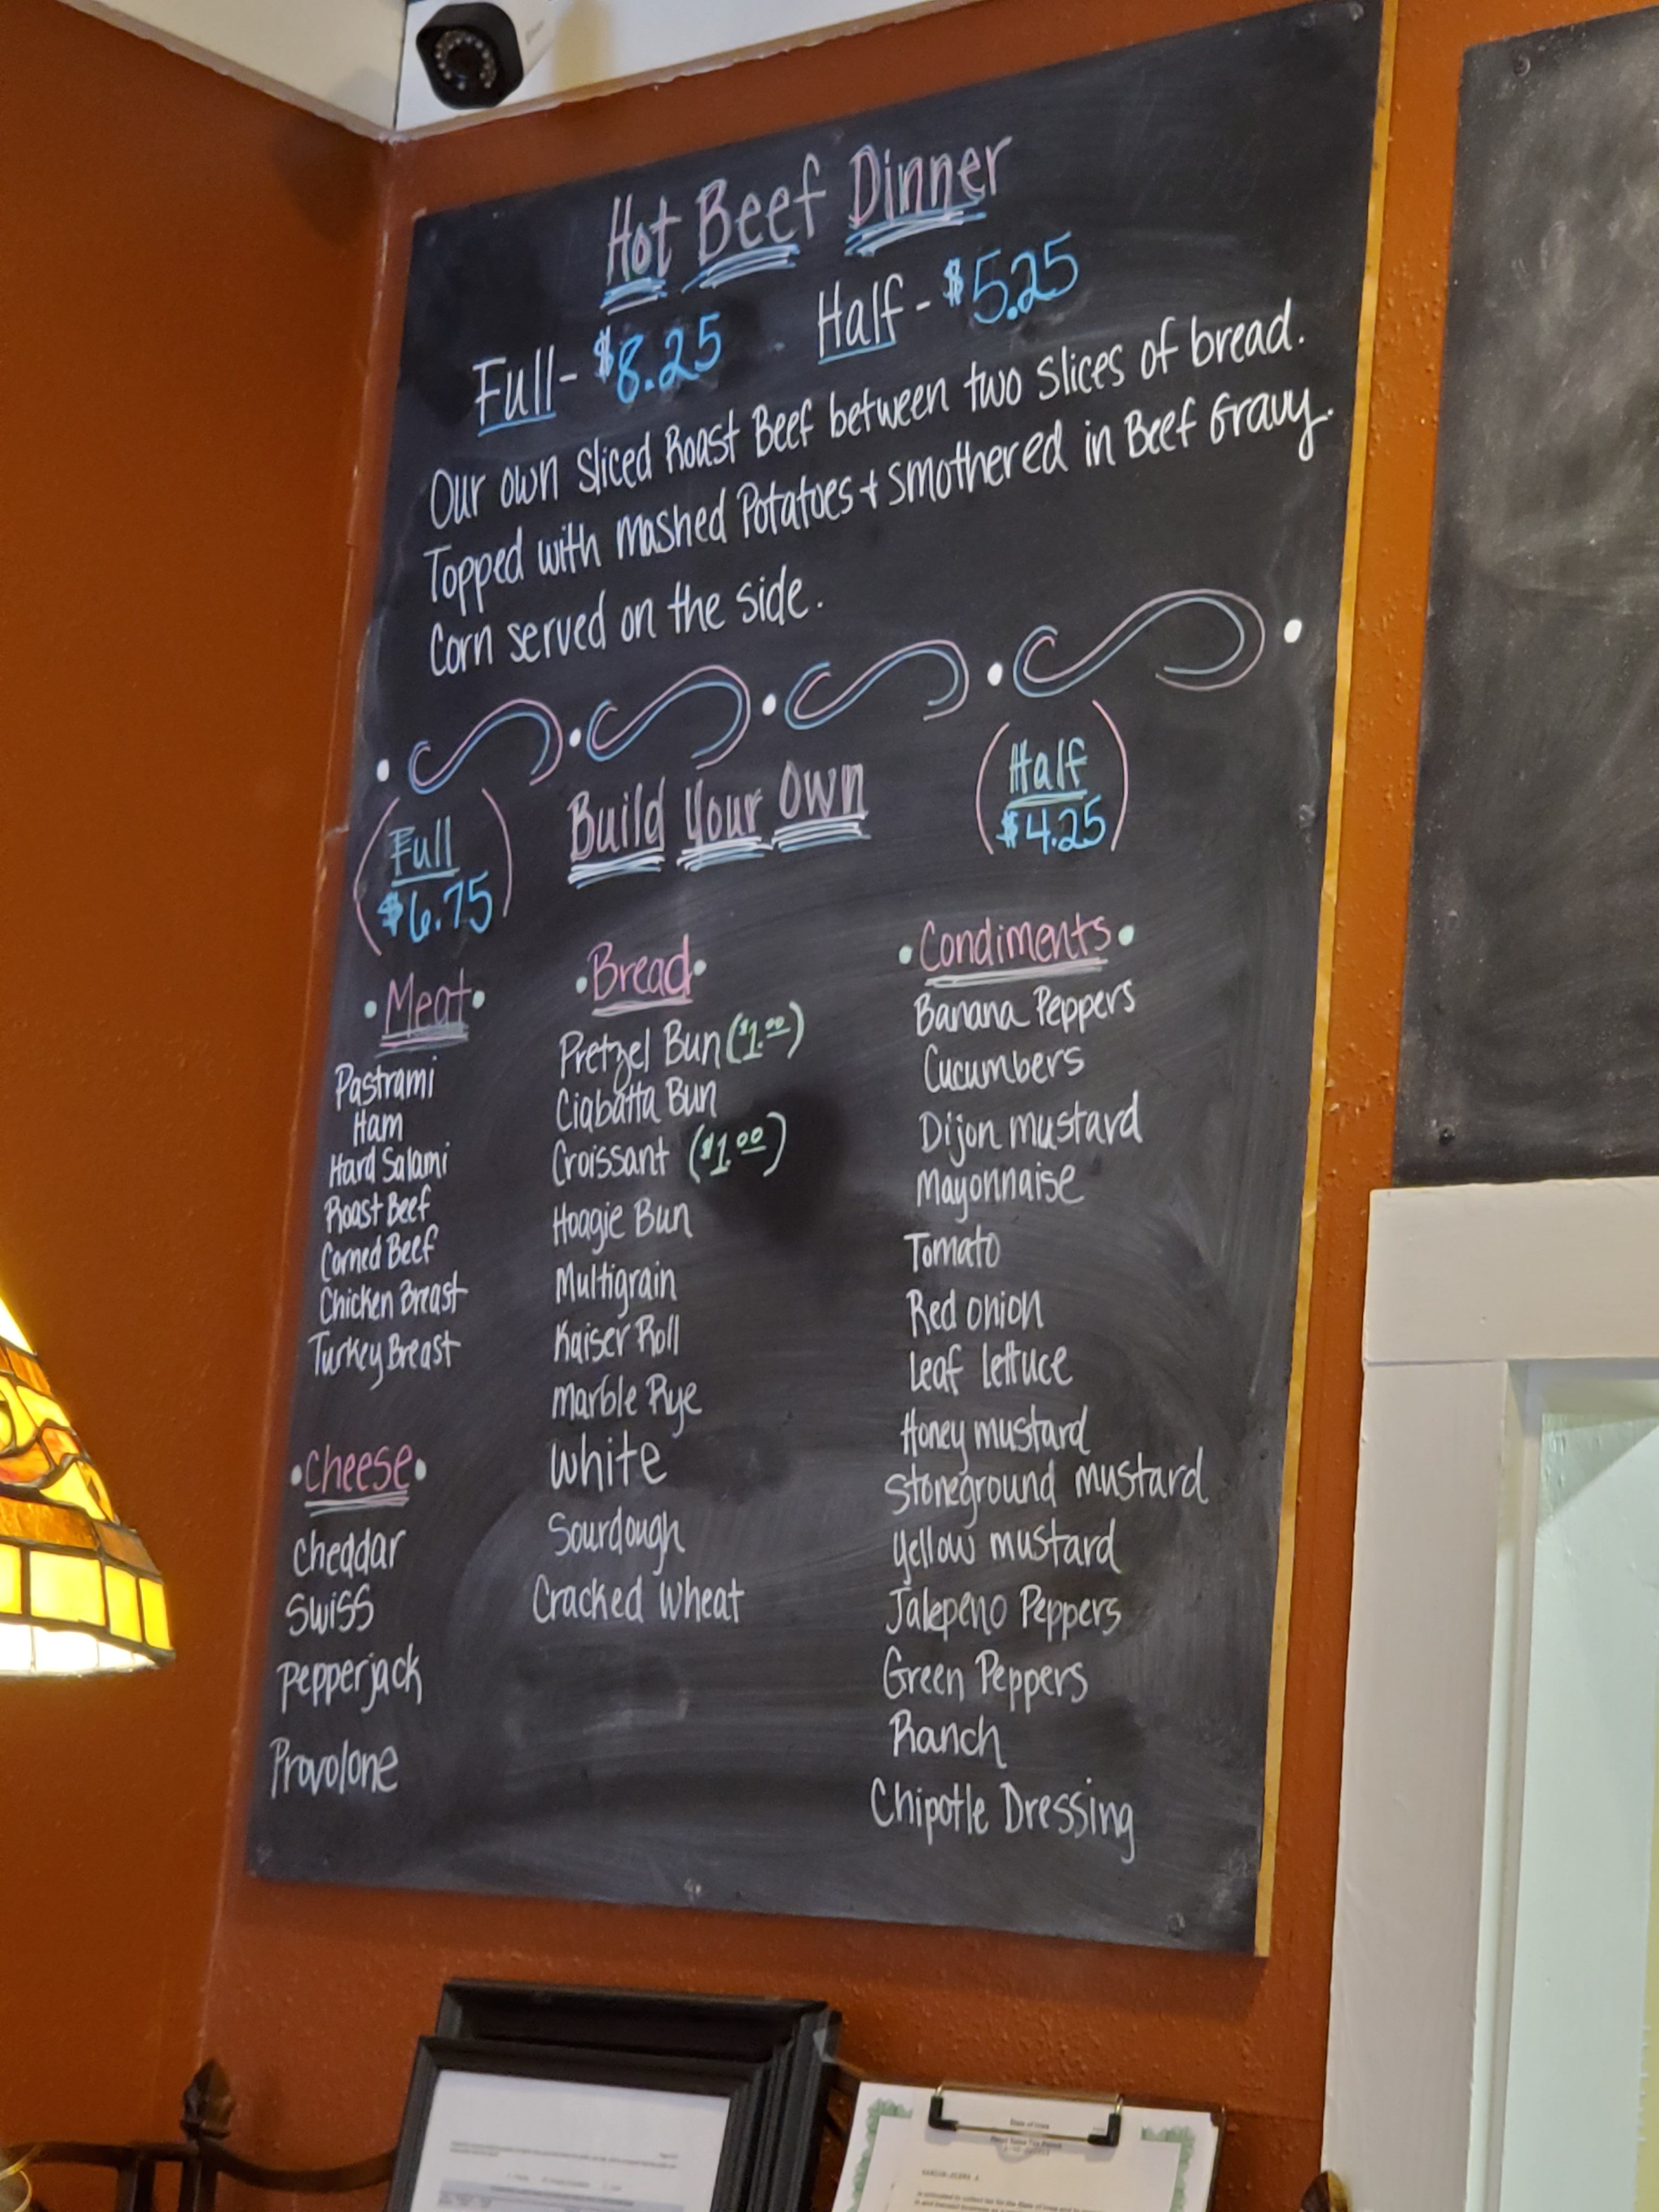 Hot Beef Dinner
Full- $8.25 Half- $5.25
Our own Sliced Roast Beef between two slices of bread.
Topped with mashed Potatoes + smothered in Beef Gravy.
Corn served on the side.
(Full $6.75)
Build Your Own
(Half $4.25)
• Meat •
Pastrami
Ham
Hard Salami
Roast Beef
Corned Beef
Chicken Breast
Turkey Breast
• Cheese •
Cheddar
Swiss
Pepperjack
Provolone
• Bread •
Pretzel Bun ($1.00)
Ciabatta Bun
Croissant ($1.00)
Hoagie Bun
Multigrain
Kaiser Roll
Marble Rye
White
Sourdough
Cracked Wheat
• Condiments •
Banana Peppers
Cucumbers
Dijon mustard
Mayonnaise
Tomato
Red onion
Leaf lettuce
Honey mustard
Stoneground mustard
Yellow mustard
Jalepeno Peppers
Green Peppers
Ranch
Chipotle Dressing